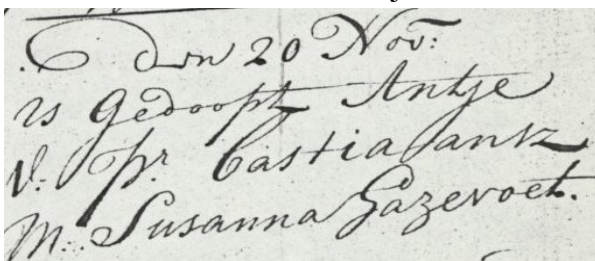 den 20 Nov:
is gedoopt Antje
V: Pr. Castiajansz
M: Susanna Gazevoet.